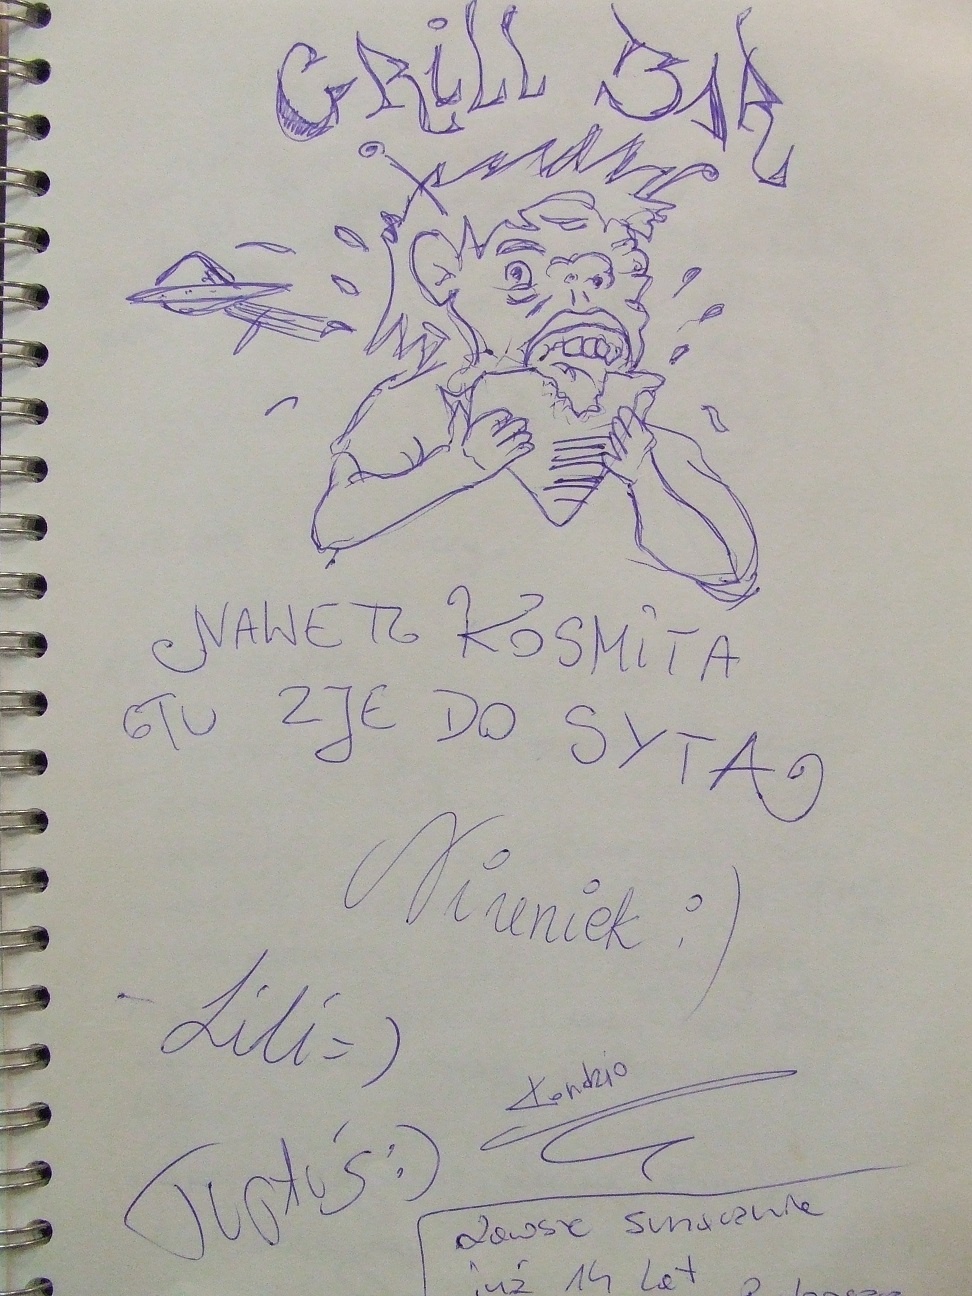 GRiLL BAR
NAWET KOSMiTA
TU ZJE DO SYTA
Niuniek :)
Lili =)
Kondzio
Tuptuś :)
Zawsze smacznie
już 14 lat